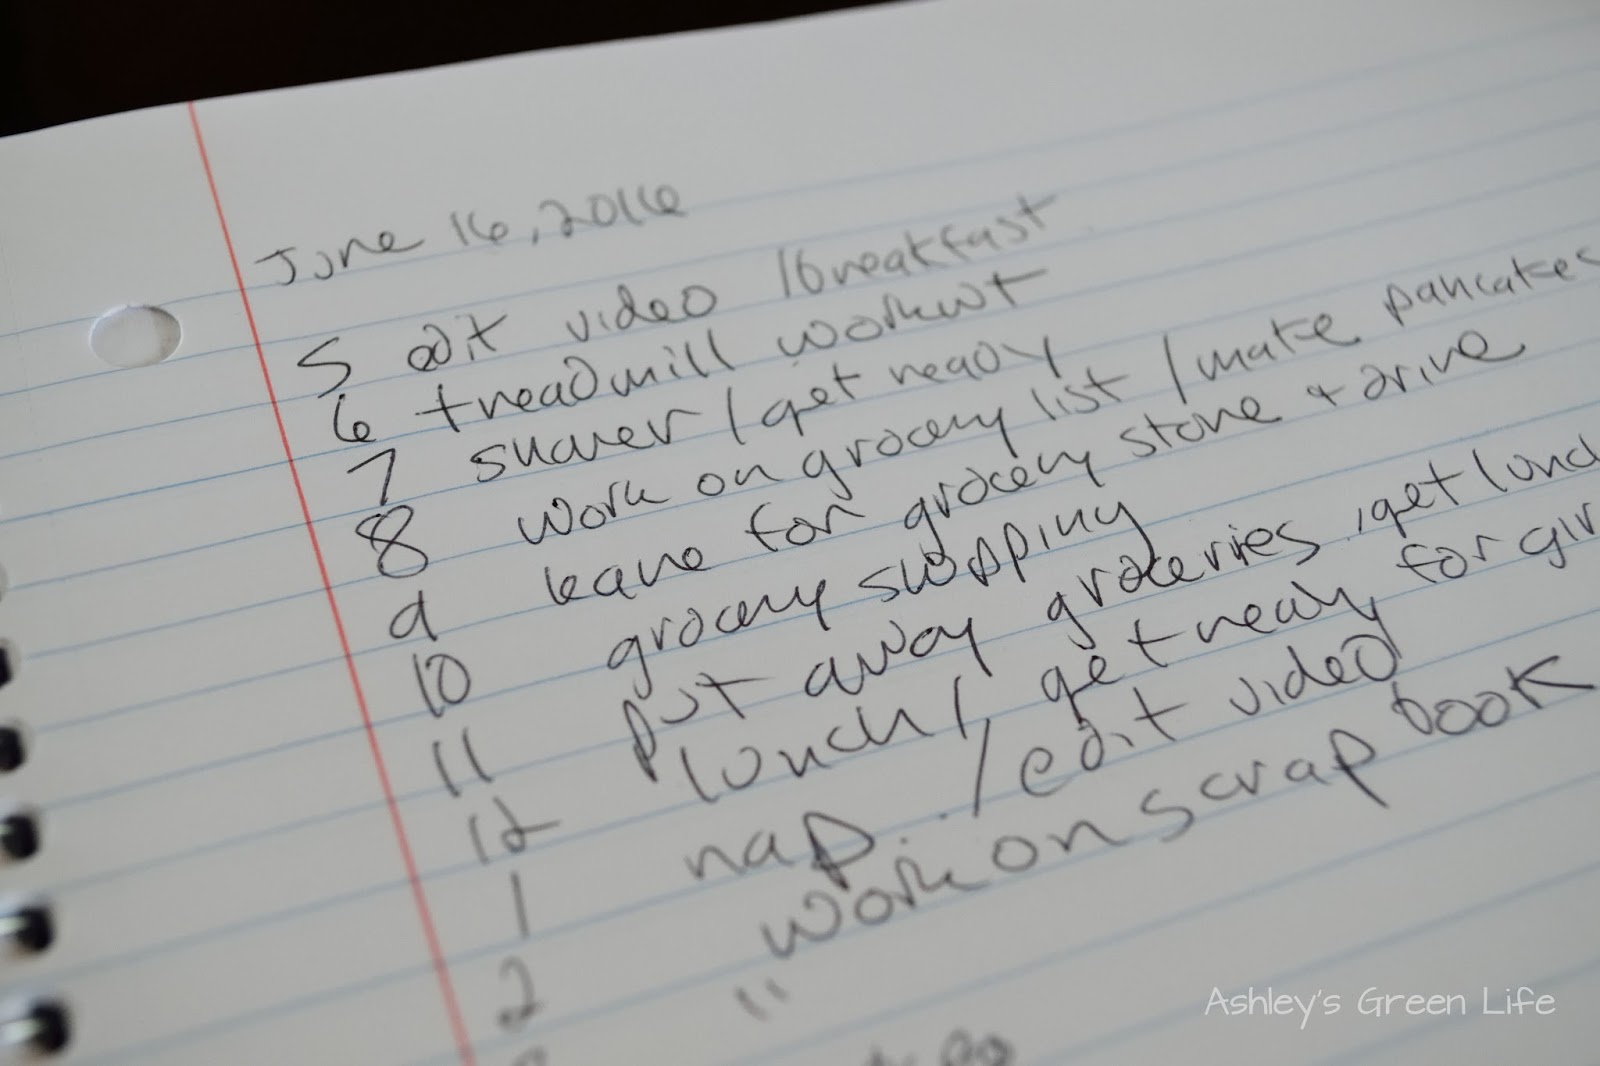 June 16, 2016
5 edit video / breakfast
6 treadmill workout
7 shower / get ready
8 work on grocery list / make pancakes
9 leave for grocery store + drive
10 grocery shopping
11 put away groceries, get lunc
12 lunch / get ready for gir
1 nap... / edit video
2 work on scrap book
"
Ashley's Green Life